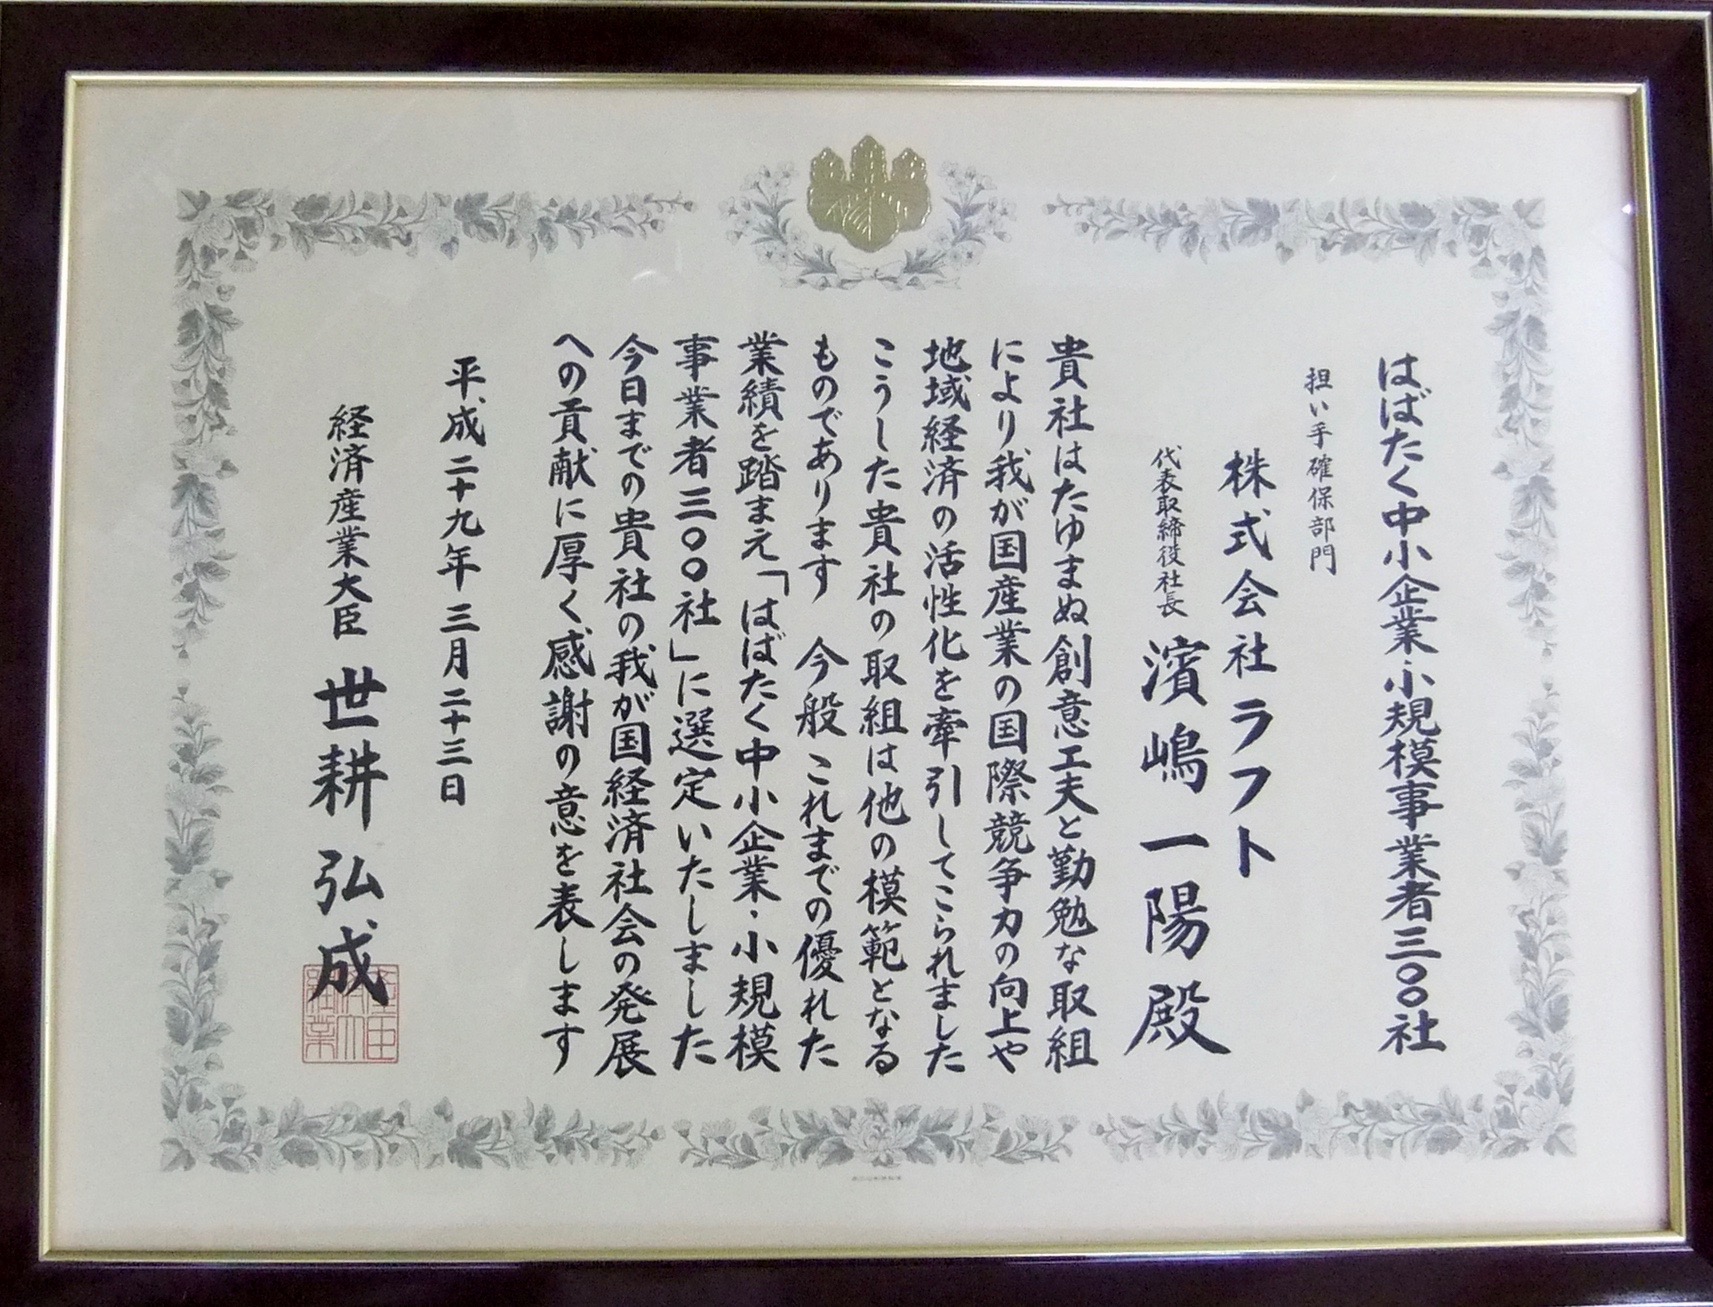 はばたく中小企業・小規模事業者三〇〇社
担い手確保部門
株式会社ラフト
代表取締役社長 濱嶋一陽殿
貴社はたゆまぬ創意工夫と勤勉な取組
により我が国産業の国際競争力の向上や
地域経済の活性化を牽引してこられました
こうした貴社の取組は他の模範となる
ものであります 今般これまでの優れた
業績を踏まえ「はばたく中小企業・小規模
事業者三〇〇社」に選定いたしました
今日までの貴社の我が国経済社会の発展
への貢献に厚く感謝の意を表します
平成二十九年三月二十三日
経済産業大臣 世耕弘成